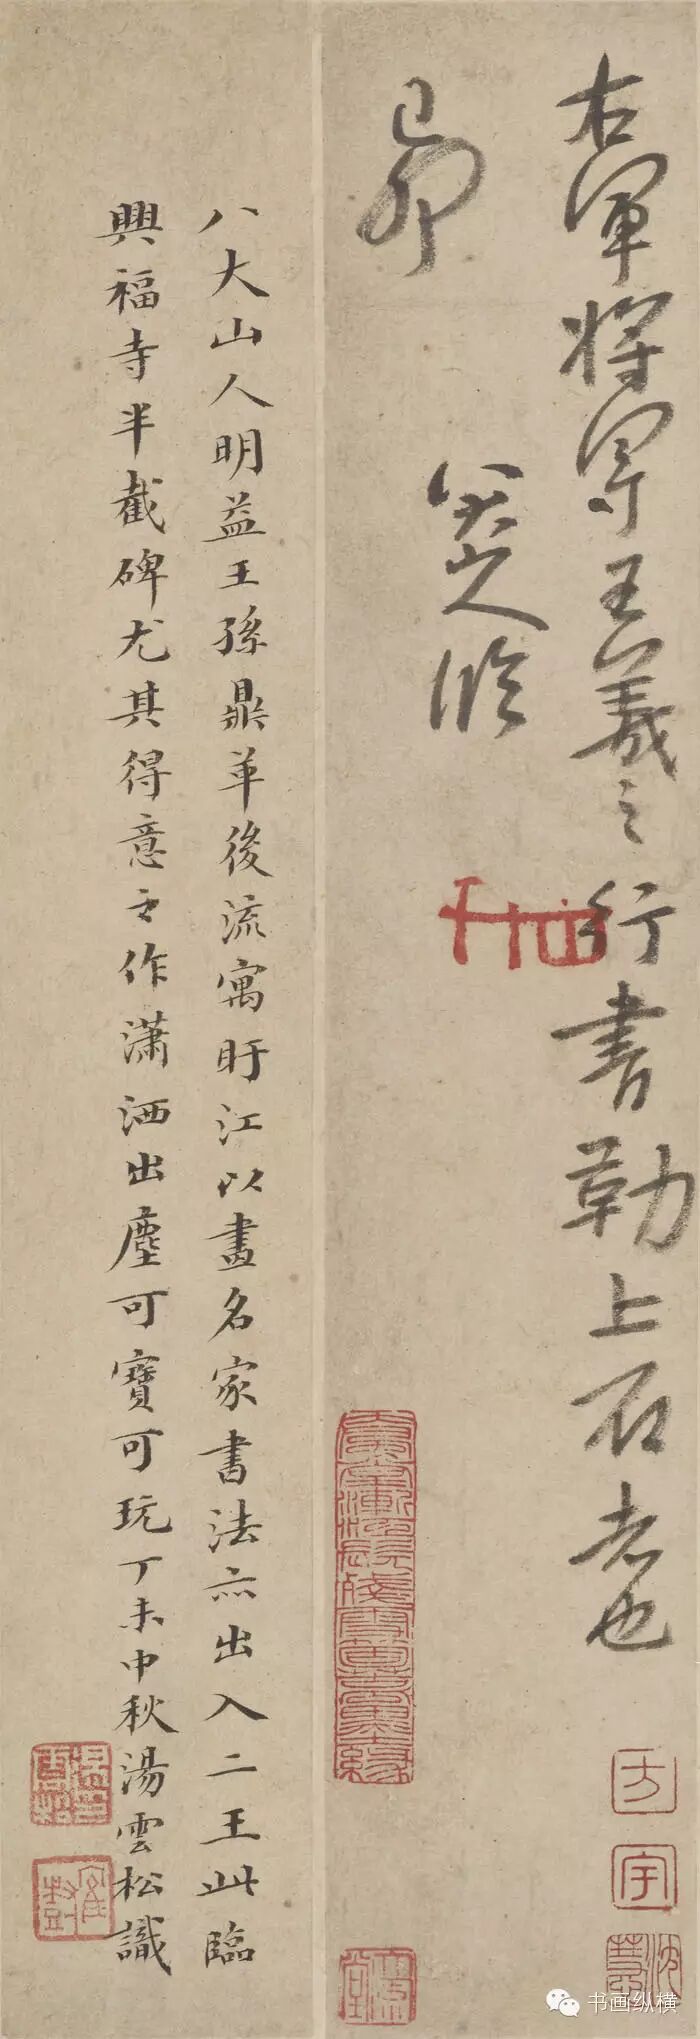 右軍將軍王羲之行書勒上石者也
己卯
八大山人臨
八大山人明益王孫鼎革後流寓盱江以畫名家書法亦出入二王此臨
興福寺半截碑尤其得意之作瀟洒出塵可寶可玩丁未中秋湯雲松識
方
宇
书画纵横